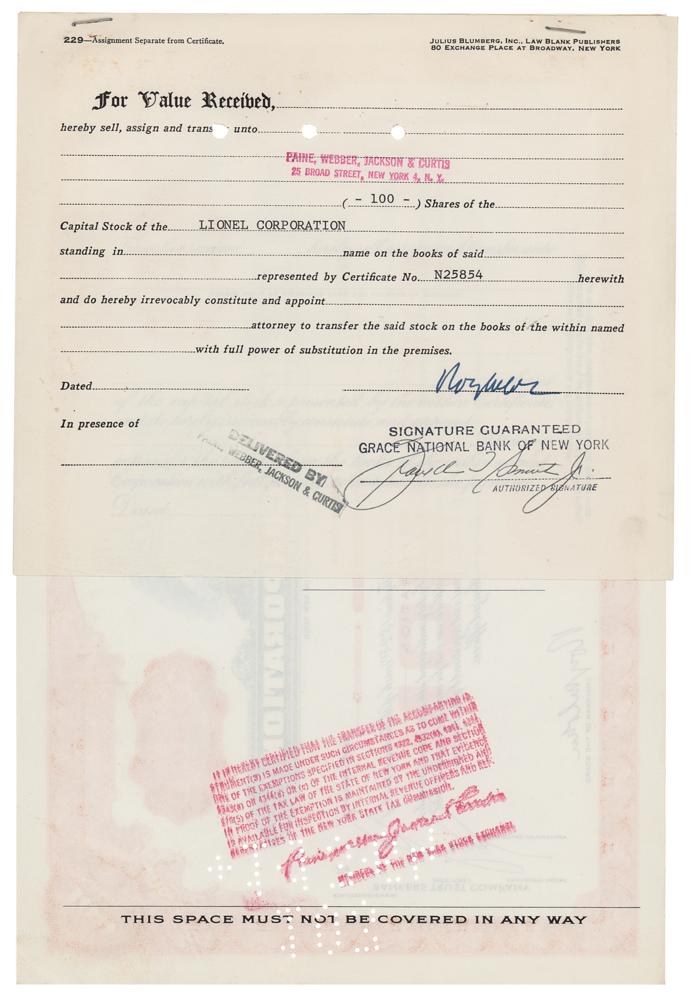 229—Assignment Separate from Certificate.
JULIUS BLUMBERG, INC., LAW BLANK PUBLISHERS
80 EXCHANGE PLACE AT BROADWAY, NEW YORK
For Value Received,
hereby sell, assign and trans unto
PAINE, WEBBER, JACKSON & CURTIS
25 BROAD STREET, NEW YORK 4, N. Y.
( - 100 - ) Shares of the
Capital Stock of the LIONEL CORPORATION
standing in name on the books of said
represented by Certificate No. N25854 herewith
and do hereby irrevocably constitute and appoint
attorney to transfer the said stock on the books of the within named
with full power of substitution in the premises.
Dated
In presence of
SIGNATURE GUARANTEED
GRACE NATIONAL BANK OF NEW YORK
AUTHORIZED SIGNATURE
DELIVERED BY
PAINE, WEBBER, JACKSON & CURTIS
IT IS HEREBY CERTIFIED THAT THE TRANSFER OF THE ACCOMPANYING IN-
STRUMENT(S) IS MADE UNDER SUCH CIRCUMSTANCES AS TO COME WITHIN
ONE OF THE EXEMPTIONS SPECIFIED IN SECTIONS
OF THE INTERNAL REVENUE CODE AND SECTION
OF THE TAX LAW OF THE STATE OF NEW YORK AND THAT EVIDENCE
IN PROOF OF THE EXEMPTION IS MAINTAINED BY THE UNDERSIGNED AND
IS AVAILABLE FOR INSPECTION BY INTERNAL REVENUE OFFICERS AND REP-
RESENTATIVES OF THE NEW YORK STATE TAX COMMISSION.
Paine Webber Jackson & Curtis
MEMBERS OF THE NEW YORK STOCK EXCHANGE
THIS SPACE MUST NOT BE COVERED IN ANY WAY